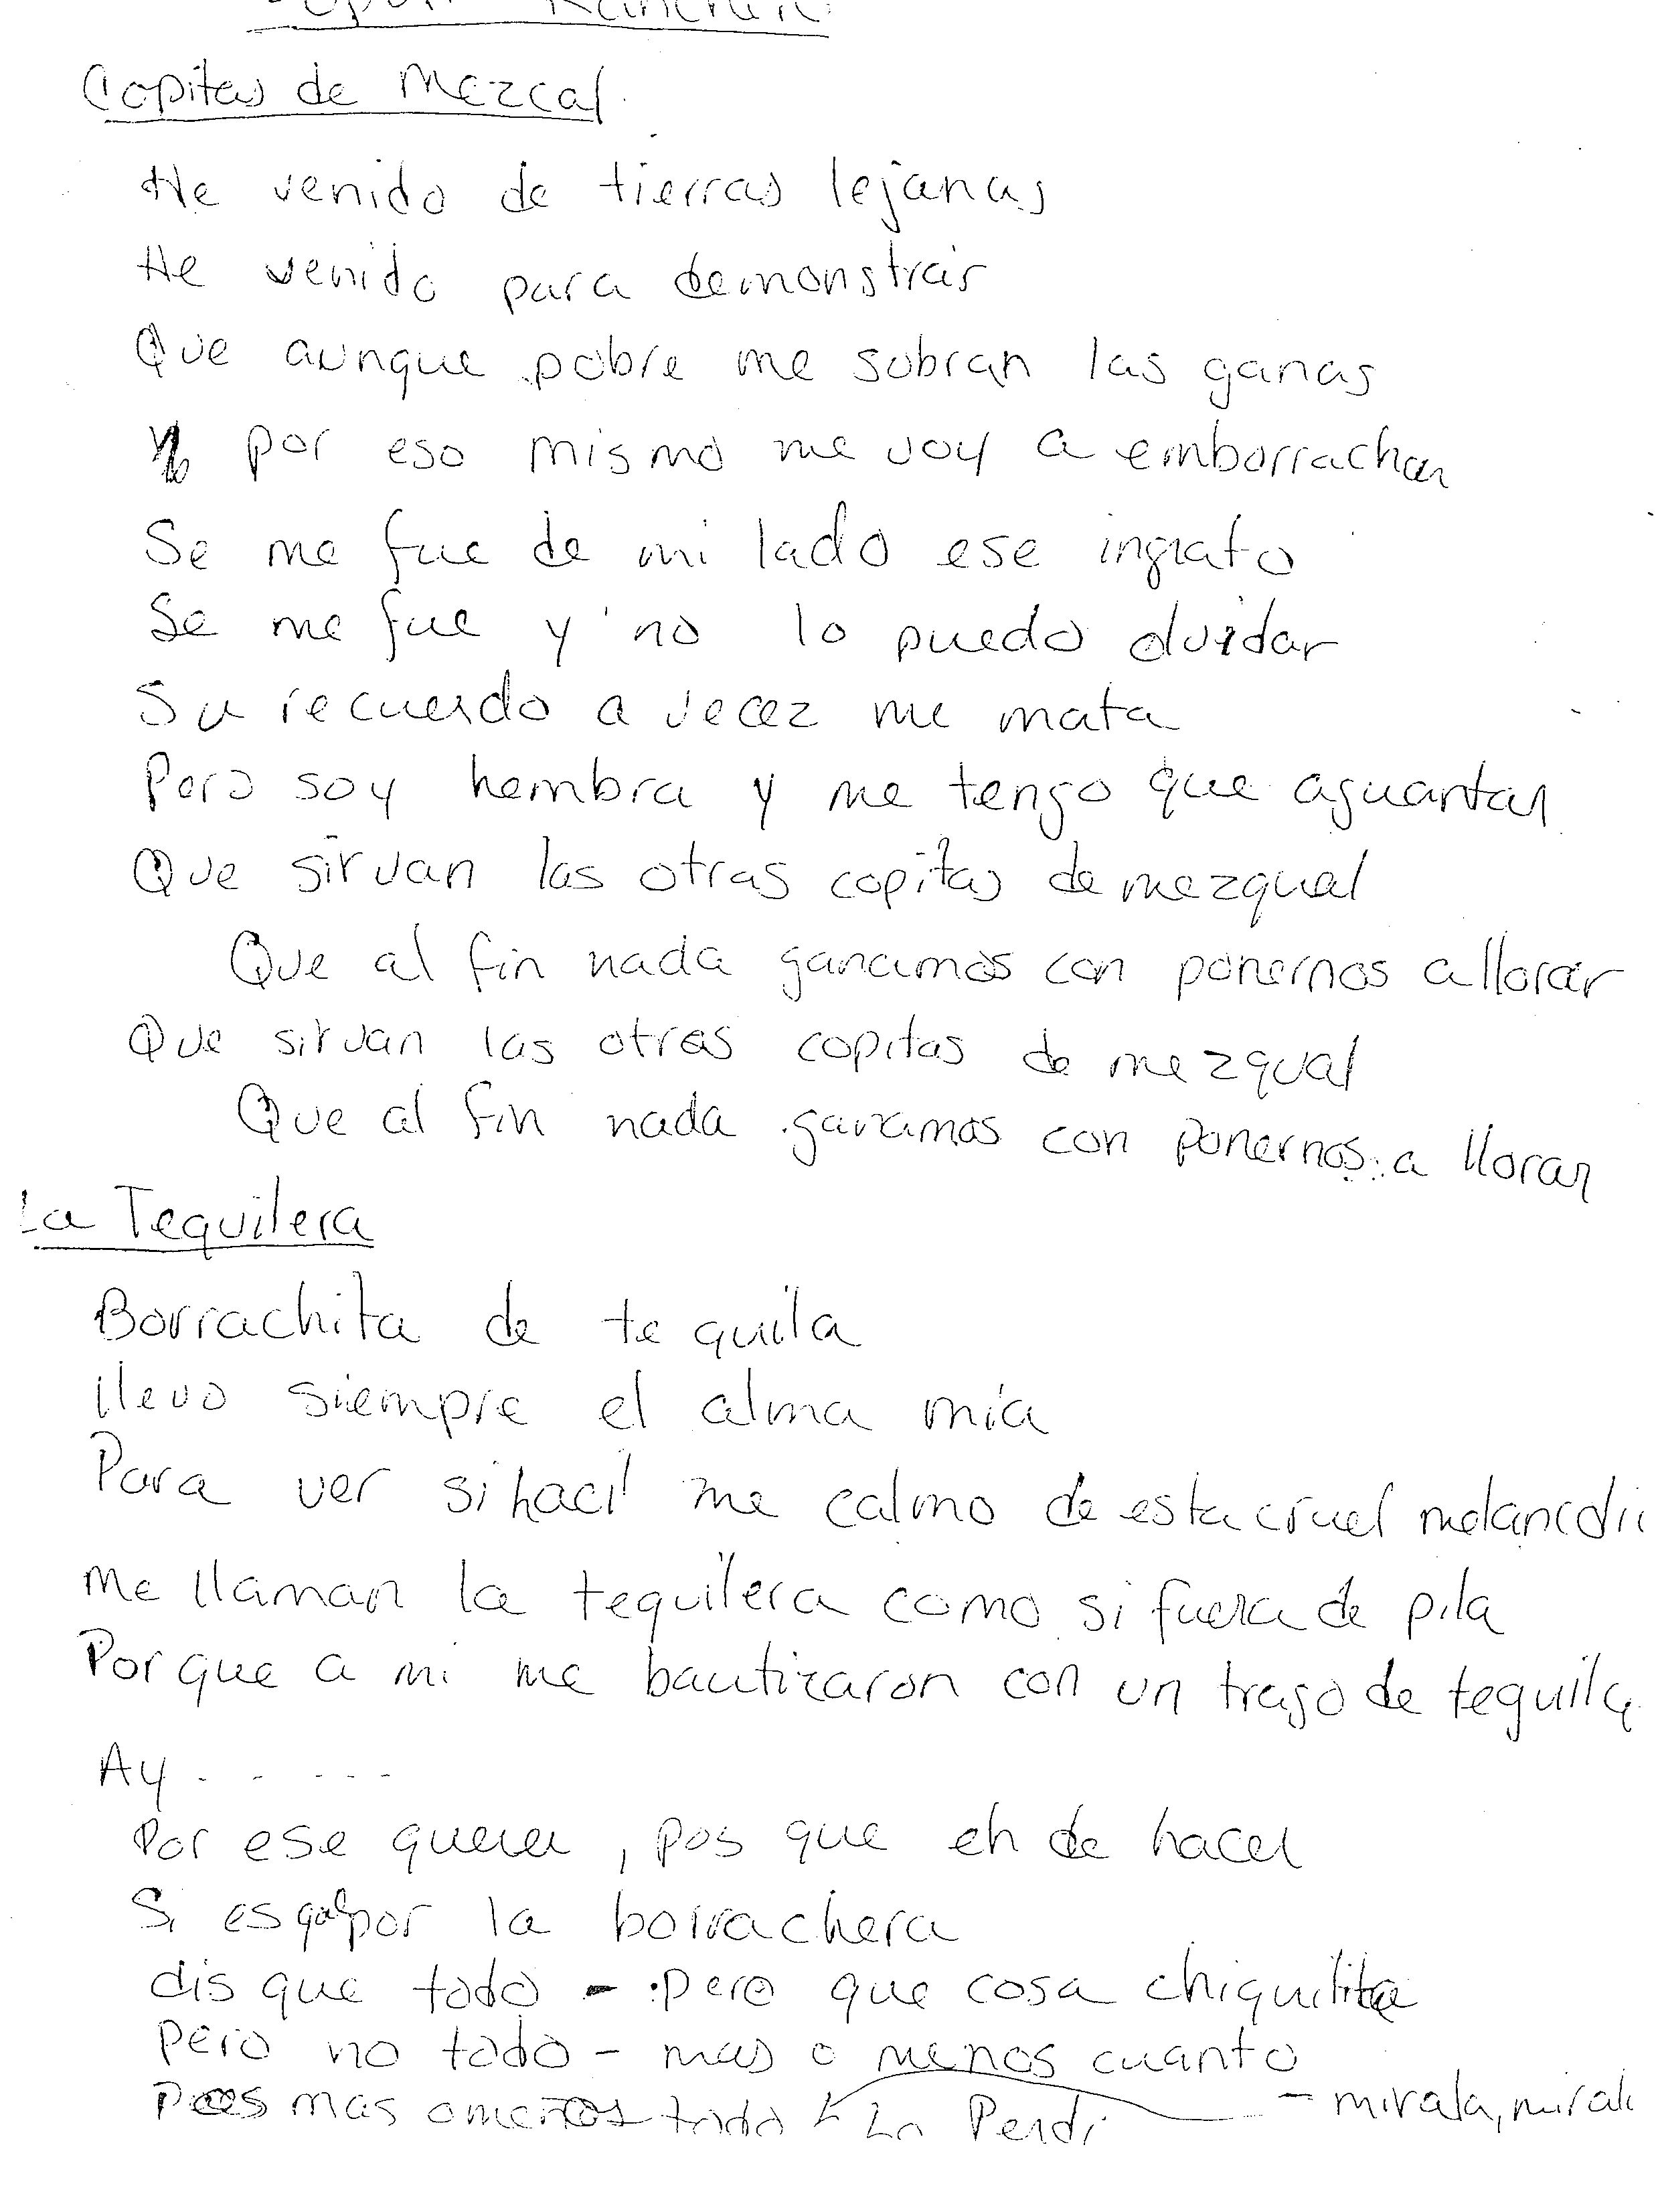 Copitas de Mezcal
He venido de tierras lejanas
He venido para demonstrar
Que aunque pobre me sobran las ganas
Y por eso mismo me voy a emborrachar
Se me fue de mi lado ese ingrato
Se me fue y no lo puedo olvidar
Su recuerdo a vecez me mata
Pero soy hembra y me tengo que aguantar
Que sirvan las otras copitas de mezqual
Que al fin nada ganamos con ponernos a llorar
Que sirvan las otras copitas de mezqual
Que al fin nada ganamos con ponernos a llorar
La Tequilera
Borrachita de tequila
llevo siempre el alma mía
Para ver si haci me calmo de esta cruel
Me llaman la tequilera como si fuera de pila
Porque a mi me bautizaron con un trago de tequila
Ay . - - - -
Por ese querer, pos que eh de hacer
Si es que por la borrachera
dis que todo - pero que cosa chiquitita
pero no todo - mas o menos cuanto
Pues mas o menos todo Lo Perdi - mirala,